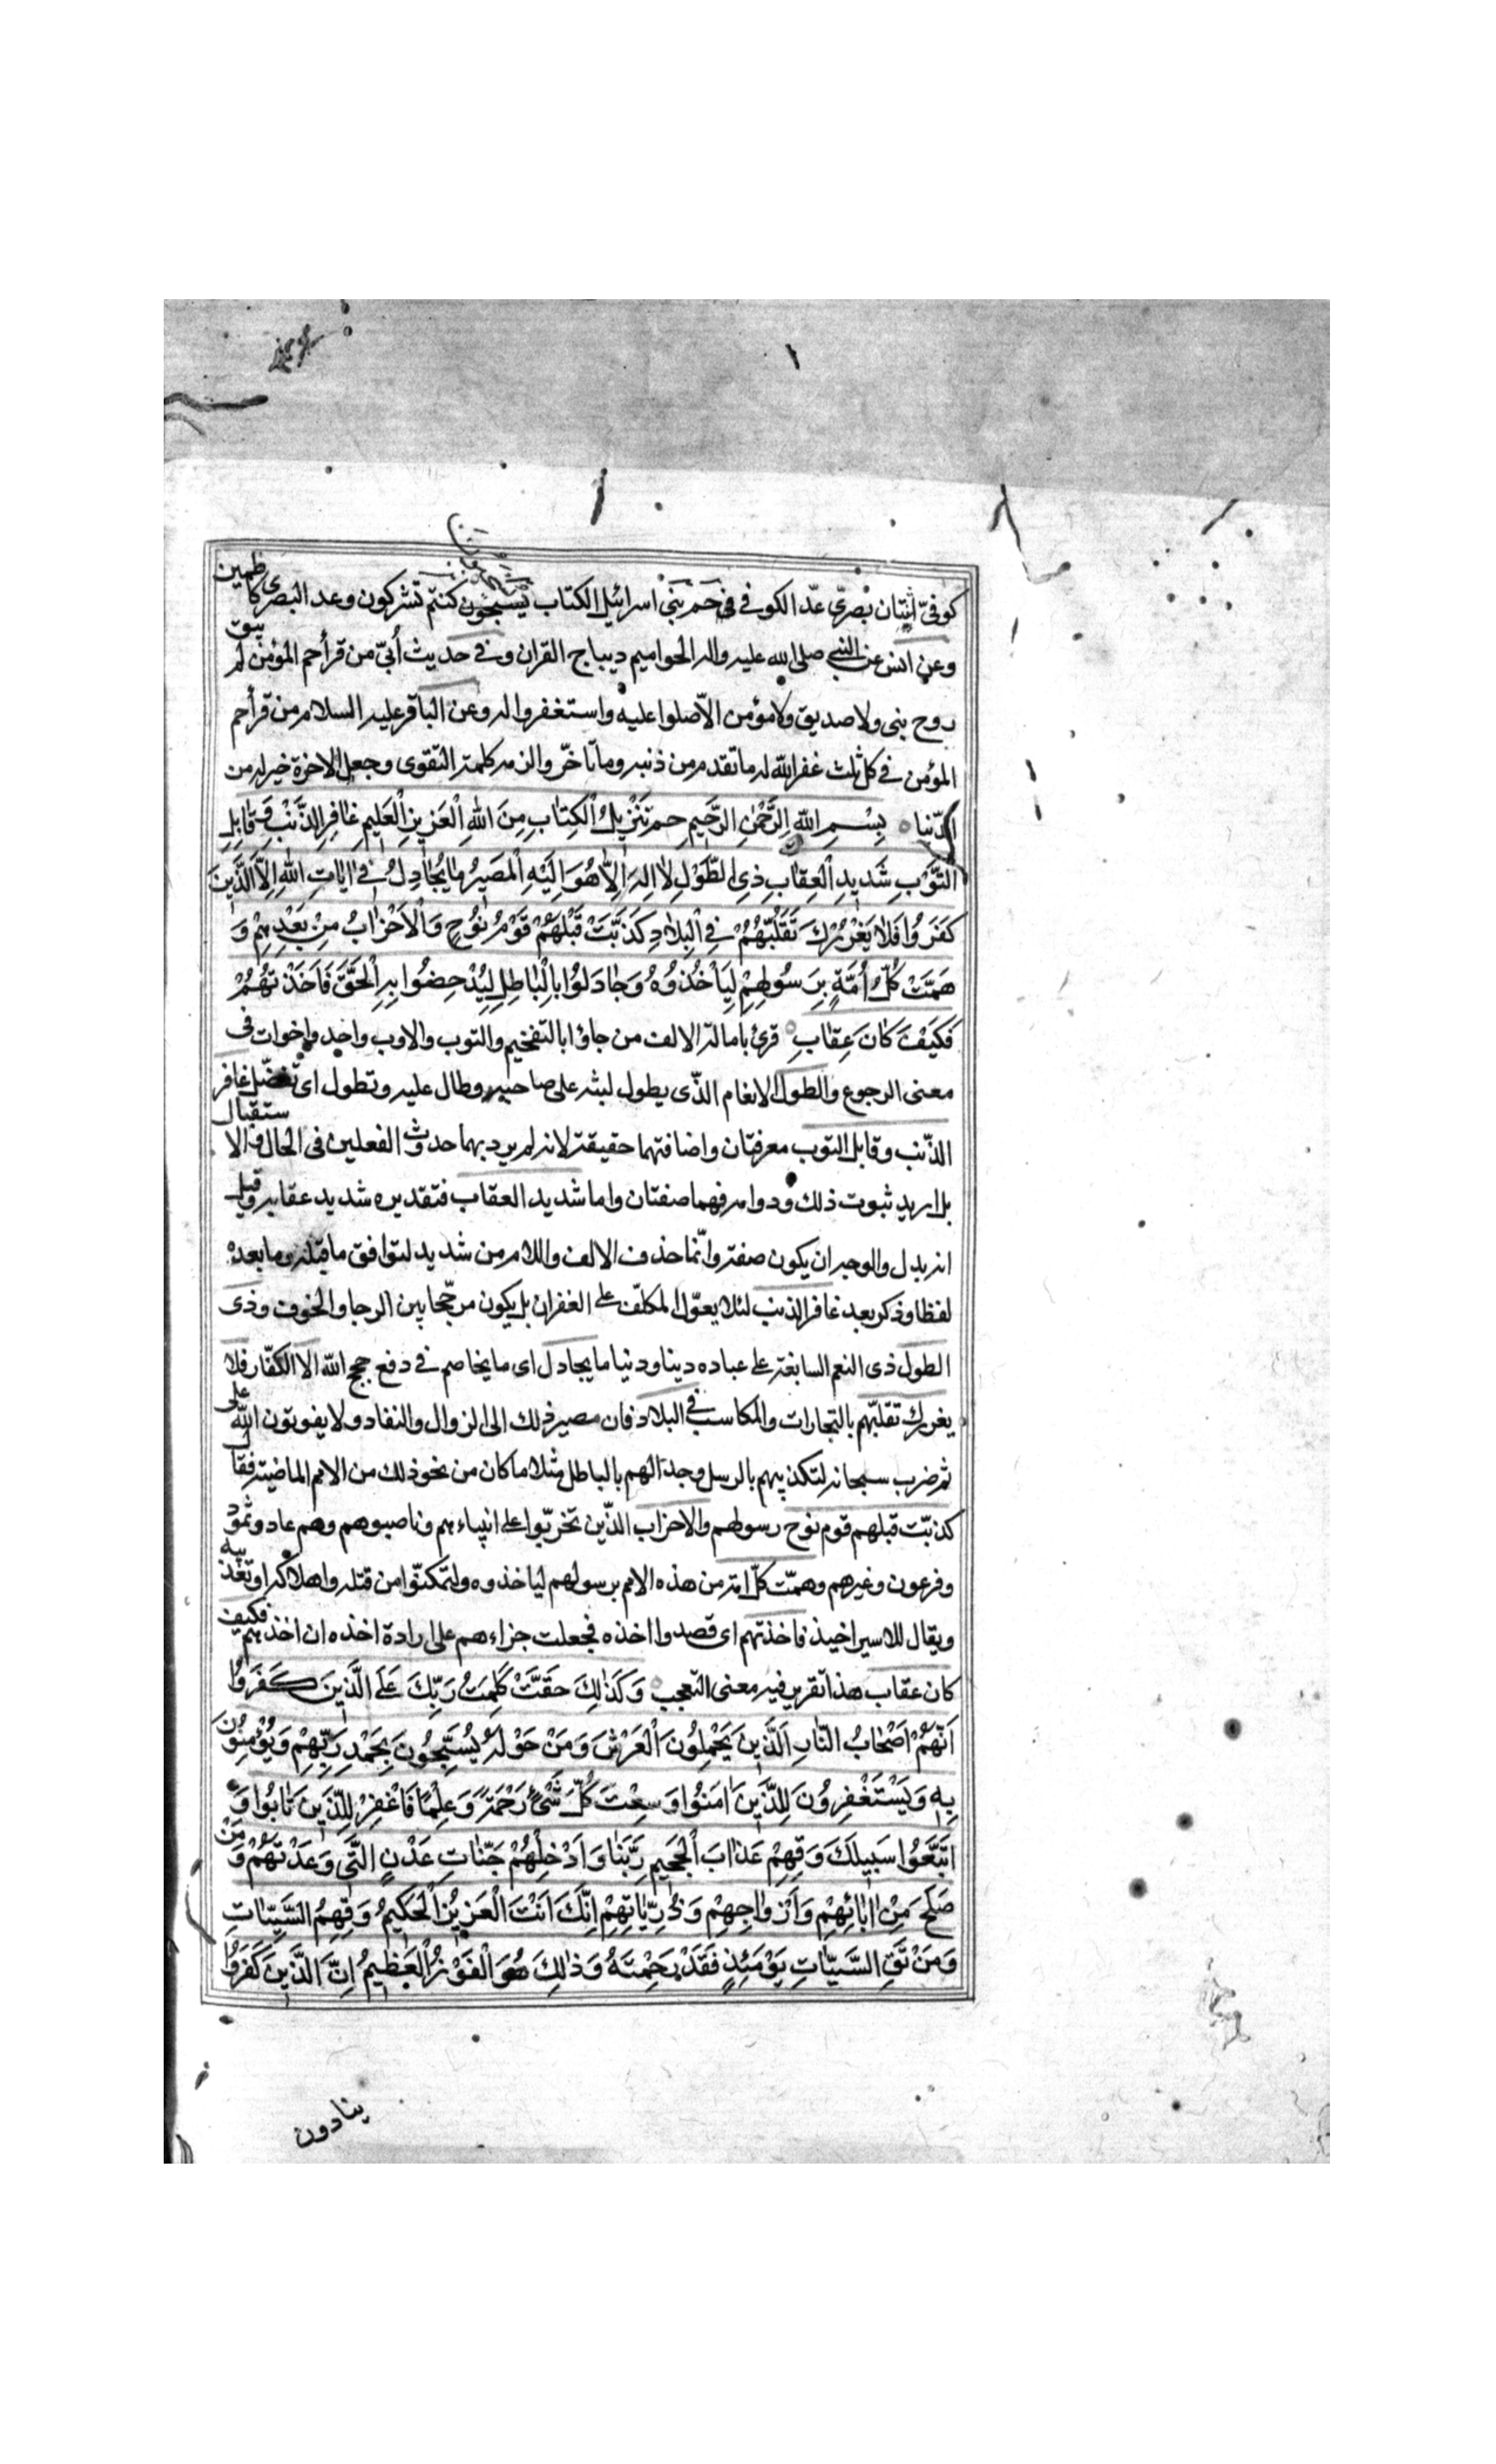 ١
كوفيّ اثنتان بصريّ عدّ الكوفي في حم بني اسرائيل الكتاب يسبحون كنتم تشركون وعد البصرى كاظمين
وعن انس عن النبي صلى الله عليه واله الحواميم ديباج القران وفي حديث أبيّ من قرأ حم المؤمن لم يبق
روح بنى ولا صديق ولا مؤمن الاّ صلوا عليه واستغفروا له وعن الباقر عليه السلام من قرأ حم
المؤمن في كل ثلث غفر الله له ما تقدم من ذنبه وما تأخّر والزمه كلمة التقوى وجعل الاخرة خير له من
الدّنيا بِسْمِ اللهِ الرَّحْمٰنِ الرَّحِيمِ حم تَنْزِيلُ الْكِتٰابِ مِنَ اللهِ الْعَزِيزِ الْعَلِيمِ غٰافِرِ الذَّنْبِ وَقٰابِلِ
التَّوْبِ شَدِيدِ الْعِقٰابِ ذِي الطَّوْلِ لاٰ اِلٰهَ اِلاّٰ هُوَ اِلَيْهِ الْمَصِيرُ مٰا يُجٰادِلُ فِي اٰيٰاتِ اللهِ اِلاَّ الَّذِينَ
كَفَرُوا فَلاٰ يَغْرُرْكَ تَقَلُّبُهُمْ فِي الْبِلاٰدِ كَذَّبَتْ قَبْلَهُمْ قَوْمُ نُوحٍ وَالْاَحْزٰابُ مِنْ بَعْدِهِمْ وَ
هَمَّتْ كُلُّ اُمَّةٍ بِرَسُولِهِمْ لِيَأْخُذُوهُ وَجٰادَلُوا بِالْبٰاطِلِ لِيُدْحِضُوا بِهِ الْحَقَّ فَاَخَذْتُهُمْ
فَكَيْفَ كٰانَ عِقٰابِ قرئ بامالة الالف من جاؤا بالتفخيم والتوب والاوب واخد واخوات فى
معنى الرجوع والطول الانعام الذّى يطول لبثه على صاحبه وطال عليه وتطول اى تفضّل غافر
الذّنب وقابل التوب معرفتان واضافتهما حقيقة لانه لم يرد بهما حدوث الفعلين فى الحال والاستقبال
بل اريد ثبوت ذلك ودوامه فهما صفتان واما شديد العقاب فتقديره شديد عقابه وقيل
انه بدل والوجه ان يكون صفة وانّما حذف الالف واللام من شديد لتوافق ما قبله وما بعده
لفظا وذكر بعد غافر الذنب لئلا يعوّل المكلّف على الغفران بل يكون مرجّحا بين الرجا والخوف وذى
الطول ذى النعم السابغة على عباده دينا ودنيا ما يجادل اى ما يخاصم في دفع حجج الله الا الكفّار فلا
يغررك تقلّبهم بالتجارات والمكاسب في البلاد فان مصير ذلك الى الزوال والنفاد ولا يفوتون الله على
ثم ضرب سبحانه لتكذيبهم بالرسل وجدالهم بالباطل مثلا ما كان من نحو ذلك من الامم الماضية فقال
كذبّت قبلهم قوم نوح رسولهم والاحزاب الذّين تحزبّوا على انبياءهم وناصبوهم وهم عاد وثمود
وفرعون وغيرهم وهمّت كلّ امة من هذه الامم برسولهم لياخذوه وليتمكنّوا من قتله واهلاكه او تعذيبه
ويقال للاسير اخيذ فاخذتهم اى قصدوا اخذه فجعلت جزاءهم على ارادة اخذه ان اخذتهم فكيف
كان عقاب هذا تقرير فيه معنى التعجب وَكَذٰلِكَ حَقَّتْ كَلِمَتُ رَبِّكَ عَلَى الَّذِينَ كَفَرُوا
اَنَّهُمْ اَصْحٰابُ النّٰارِ اَلَّذِينَ يَحْمِلُونَ الْعَرْشَ وَمَنْ حَوْلَهُ يُسَبِّحُونَ بِحَمْدِ رَبِّهِمْ وَيُؤْمِنُونَ
بِهِ وَيَسْتَغْفِرُونَ لِلَّذِينَ اٰمَنُوا وَسِعْتَ كُلَّ شَيْءٍ رَحْمَةً وَعِلْمًا فَاغْفِرْ لِلَّذِينَ تٰابُوا وَ
اتَّبَعُوا سَبِيلَكَ وَقِهِمْ عَذٰابَ الْجَحِيمِ رَبَّنٰا وَاَدْخِلْهُمْ جَنّٰاتِ عَدْنٍ الَّتِي وَعَدْتَهُمْ وَمَنْ
صَلَحَ مِنْ اٰبٰائِهِمْ وَاَزْوٰاجِهِمْ وَذُرِّيّٰاتِهِمْ اِنَّكَ اَنْتَ الْعَزِيزُ الْحَكِيمُ وَقِهِمُ السَّيِّئٰاتِ
وَمَنْ تَقِ السَّيِّئٰاتِ يَوْمَئِذٍ فَقَدْ رَحِمْتَهُ وَذٰلِكَ هُوَ الْفَوْزُ الْعَظِيمُ اِنَّ الَّذِينَ كَفَرُوا
ينادون